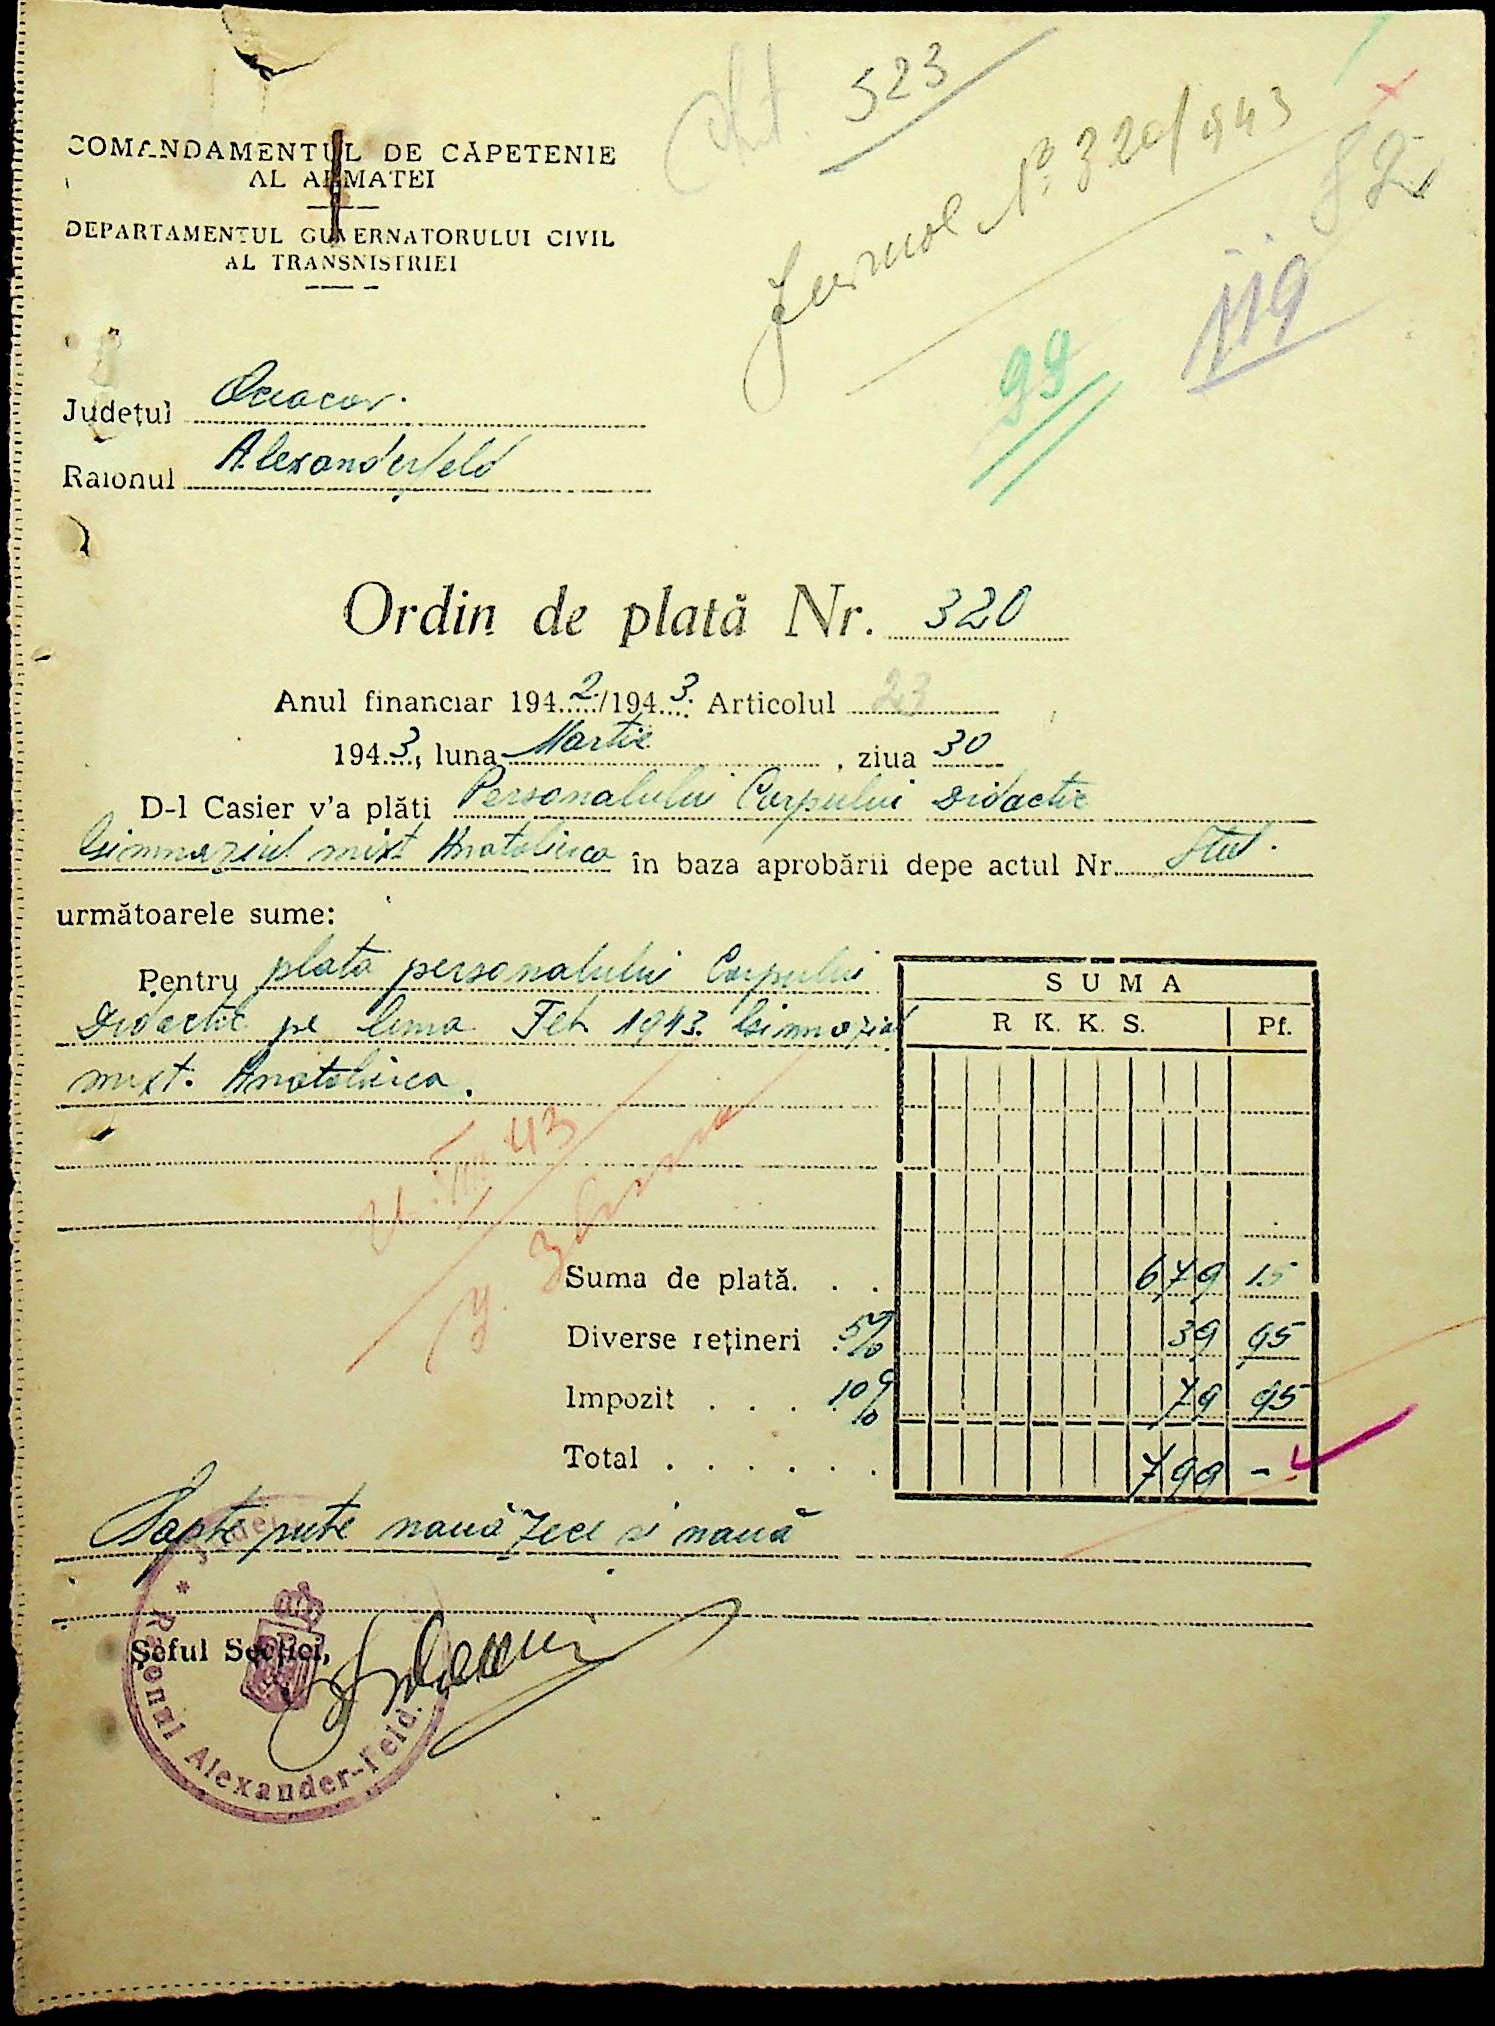 523
Jurnal No 320/943
82
119
99
COMANDAMENTUL DE CĂPETENIE
AL ARMATEI
DEPARTAMENTUL GUVERNATORULUI CIVIL
AL TRANSNISTRIEI
Județul Oceacov.
Raionul Alexanderfeld
Ordin de plată Nr. 320
Anul financiar 1942/1943. Articolul 23
1943, luna Martie, ziua 30
D-l Casier v'a plăti Personalului Corpului Didactic
Gimnaziul mixt Anatolievca în baza aprobării depe actul Nr. Stat.
următoarele sume:
Pentru plata personalului Corpului
Didactic pe luna Feb 1943. Gimnazial
mixt. Anatolievca.
SUMA
R. K. K. S. Pf.
43
Suma de plată. . . 679 15
Diverse rețineri 5% 39 95
Impozit . . . 10% 79 95
Total . . . . . . . 799 -
Șapte sute nouă zeci și nouă
Șeful Secției,
* Raionul Alexander-Feld.